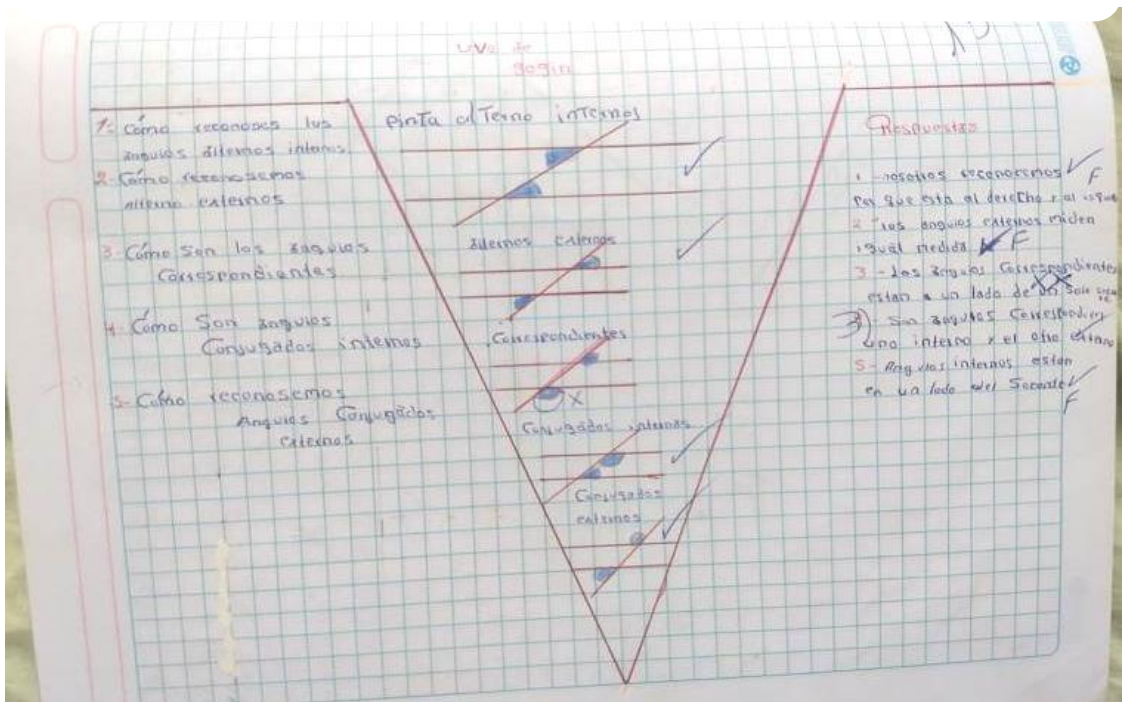 UVe de
gogin
1- Cómo reconoses los
ángulos alternos internos
2- Cómo reconosemos
alterno externos
3- Cómo son los angulos
Correspondientes
4- Cómo Son angulos
Conjugados internos
5- Cómo reconosemos
Angulos Conjugados
externos
pinta alTerno internos
alternos externos
Correspondientes
X
Conjugados internos
Conjugados
externos
Respuestas
1 - nosotros reconocemos
por que esta al derecho y al
F
2 - los angulos externos miden
igual medida F
3 - Los angulos Correspondientes
estan a un lado de un solo
Son angulos Correspondien
uno interno y el otro externo
5 - Angulos internos estan
en un lado del Secante
F